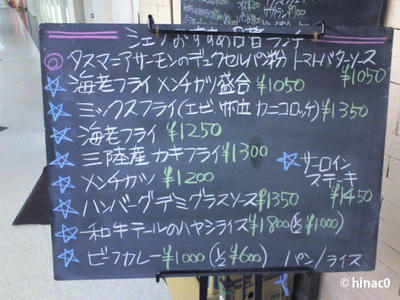 シェフおすすめ日替ランチ
◎タスマニアサーモンのデュクセルパン粉 トマトバターソース ¥1050
☆海老フライ メンチカツ盛合 ¥1050
☆ミックスフライ(エビ 帆立 カニコロッケ) ¥1350
☆海老フライ ¥1250
☆三陸産 カキフライ ¥1300
☆メンチカツ ¥1200
☆サーロインステーキ ¥1450
☆ハンバーグデミグラスソース ¥1350
☆和牛テールのハヤシライス ¥1800(½ ¥1000)
☆ビーフカレー ¥1000(½ ¥600) パン/ライス
© hinac0